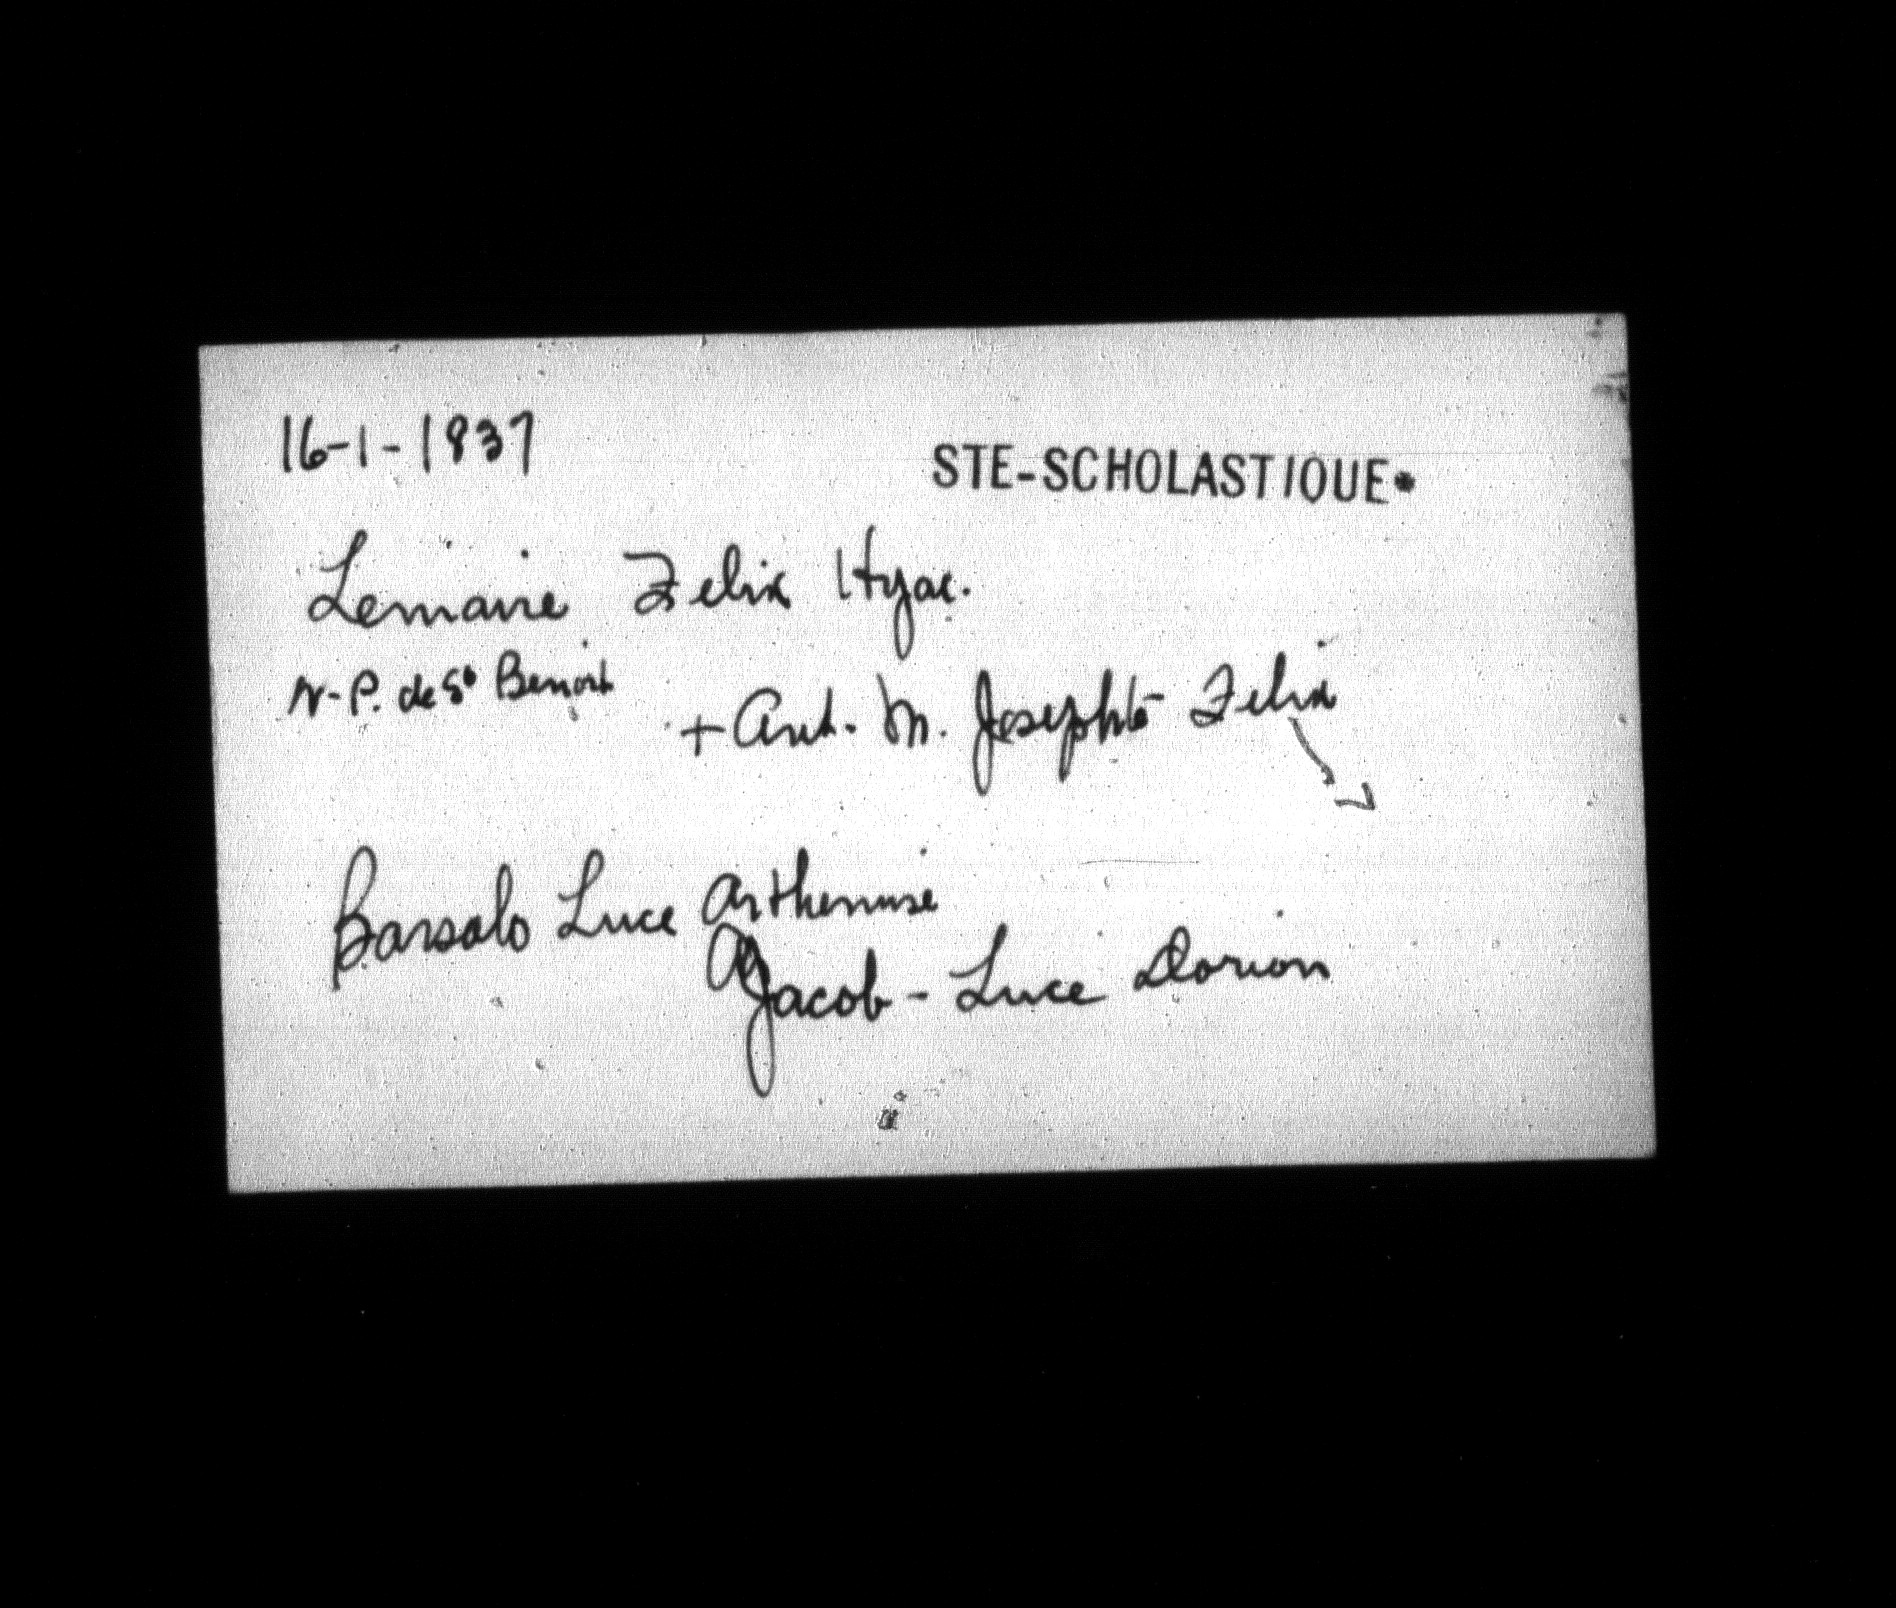 16-1-1837
STE-SCHOLASTIQUE*
Lemaire Felix Hyac.
N-P. de St Benoit
+ Ant. M. Josephte Felix
Barsalo Luce Arthemise
Jacob - Luce Dorion